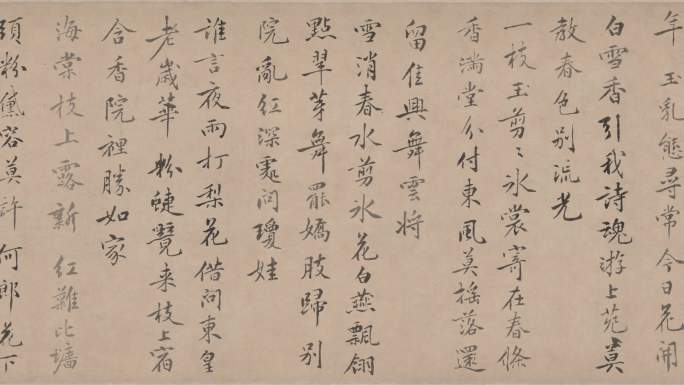 年 玉乳態尋常今日花開
白雪香引我詩魂游上苑莫
教春色別流光
一枝玉剪〻冰裳寄在春條
香滿堂分付東風莫搖落還
留佳興舞雲將
雪消春水剪冰花白燕飄翎
點翠芽舞罷嬌肢歸別
院亂紅深處問瓊娃
誰言夜雨打梨花借問東皇
老歲華 粉蜨覽來枝上宿
含香院裡勝如家
海棠枝上露新 紅難比墻
頭粉黛容莫許何郎花下